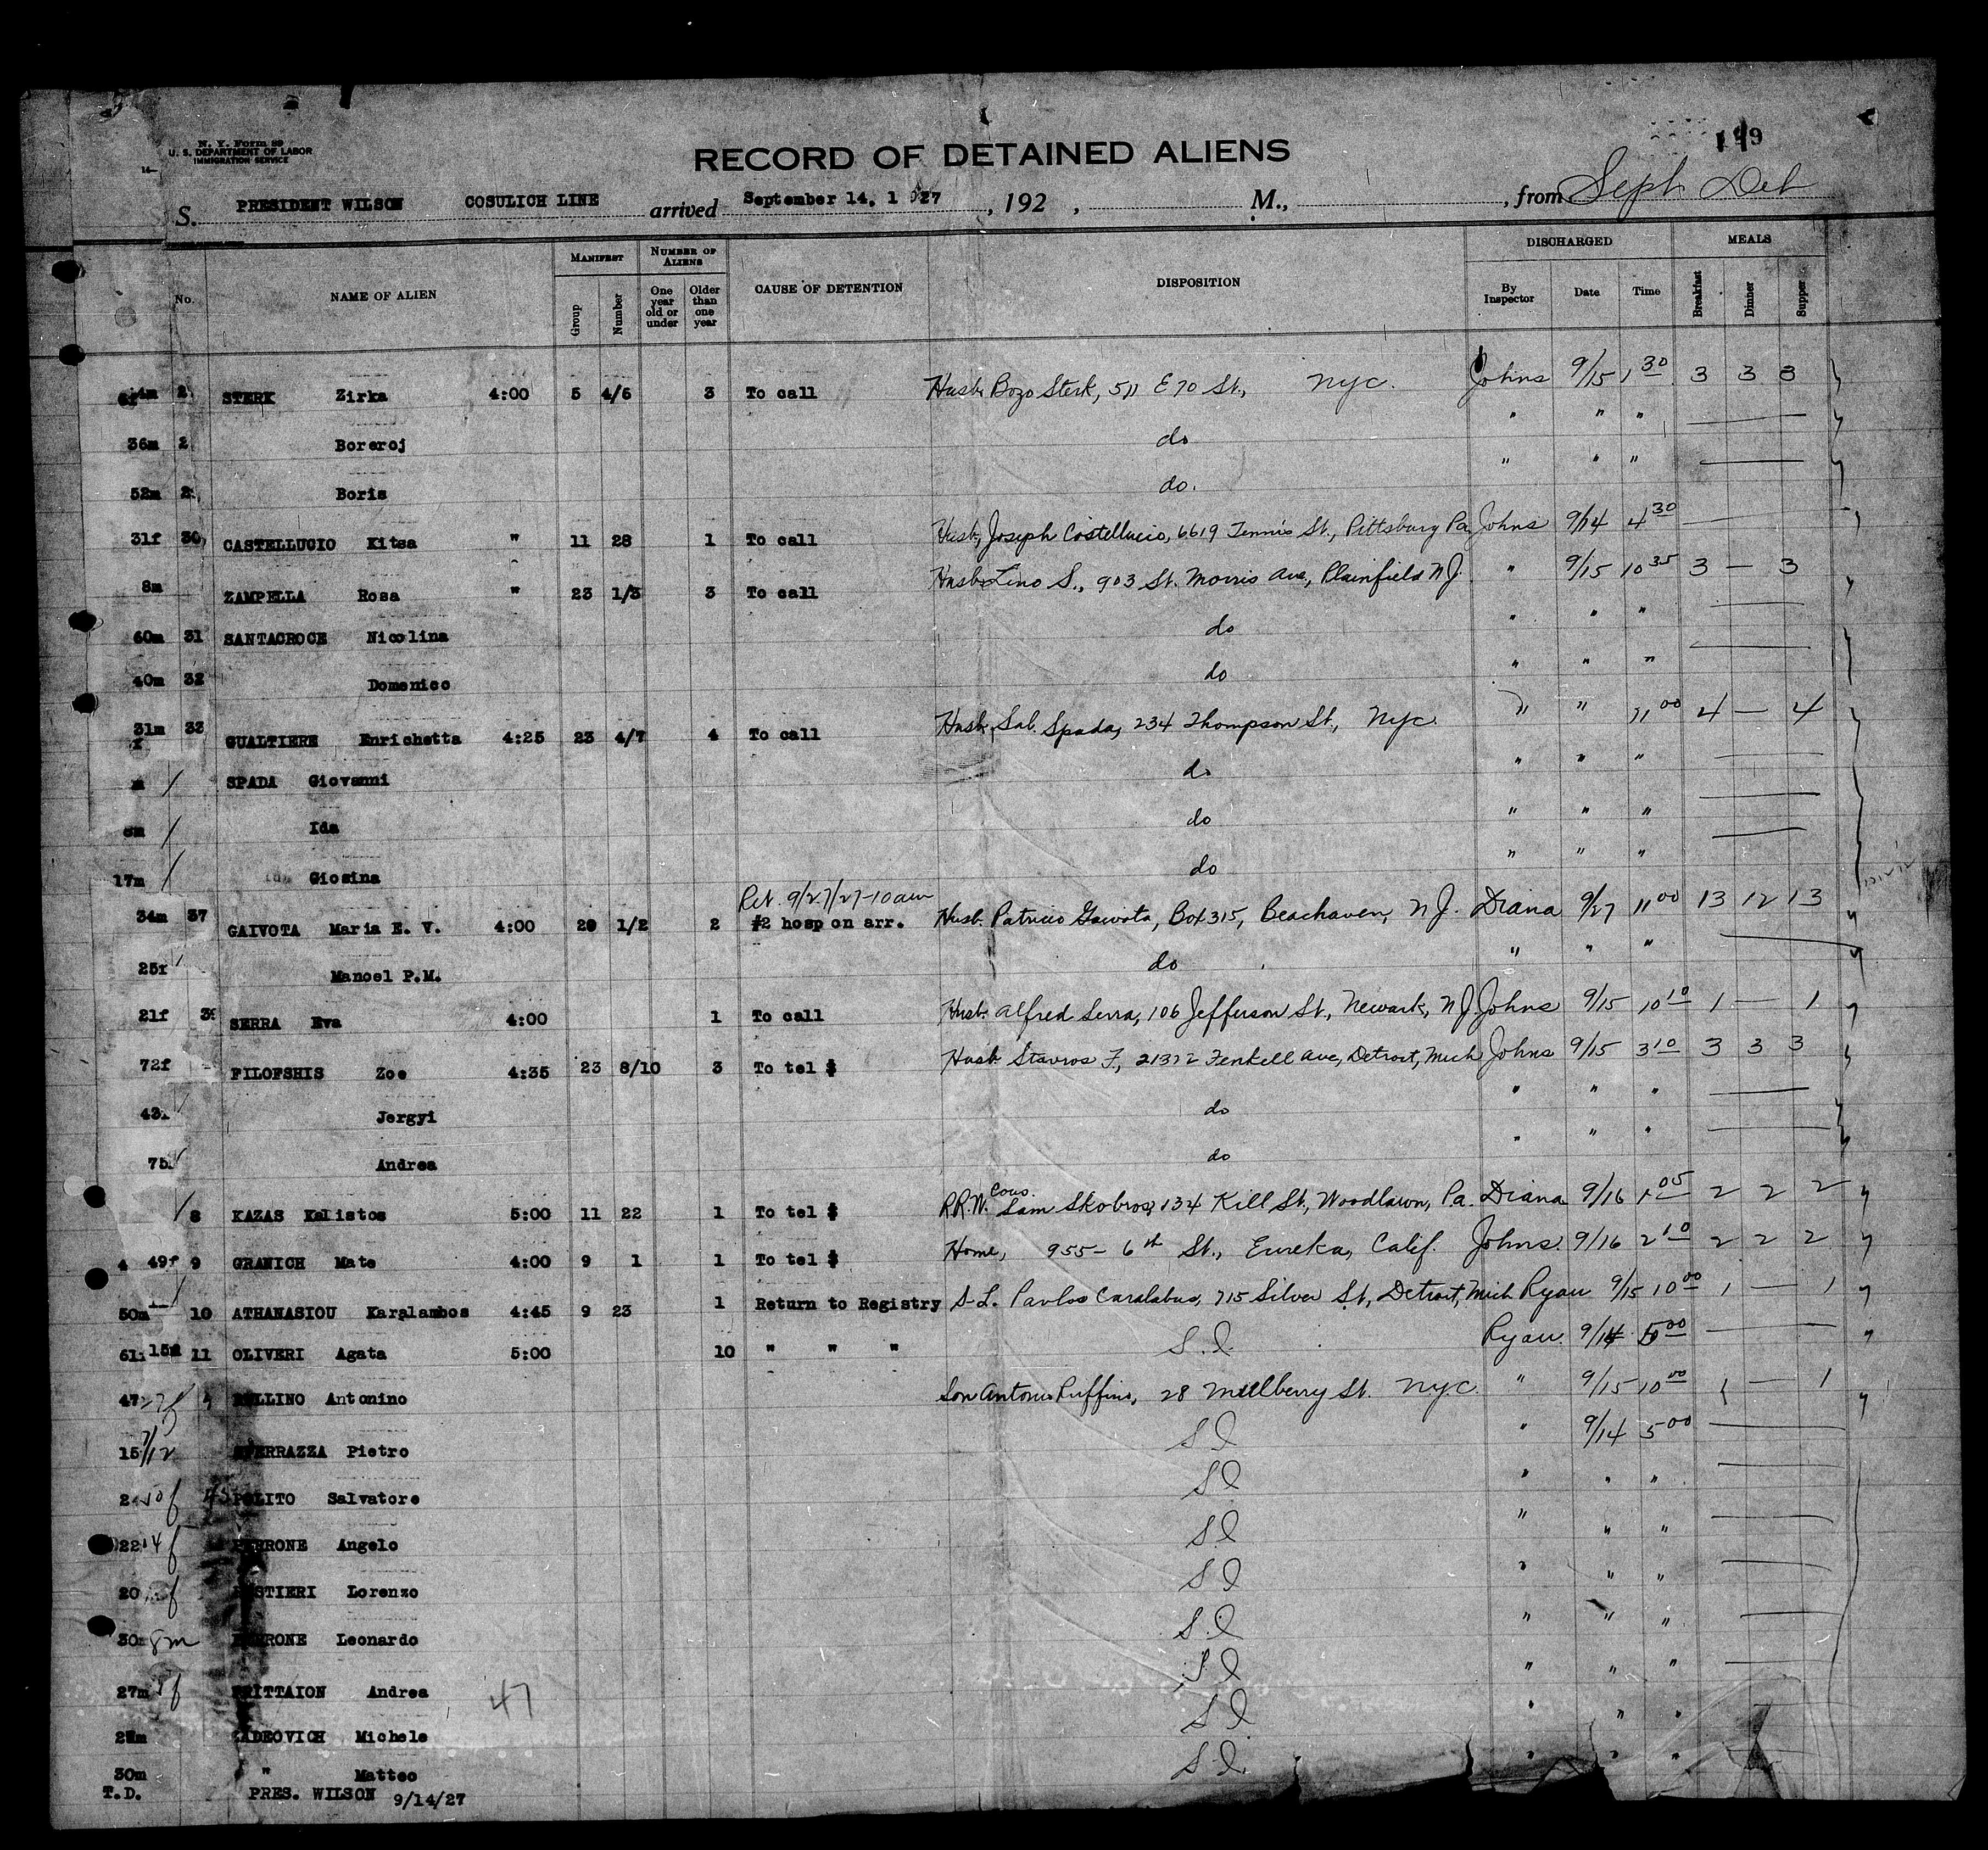 N. Y. Form 89
U. S. DEPARTMENT OF LABOR
IMMIGRATION SERVICE
RECORD OF DETAINED ALIENS
S. PRESIDENT WILSON COSULICH LINE arrived September 14, 1927, 192 , M., , from Sept Det
DISCHARGED MEALS
MANIFEST NUMBER OF ALIENS
No. NAME OF ALIEN Group Number One year old or under Older than one year CAUSE OF DETENTION DISPOSITION By Inspector Date Time Breakfast Dinner Supper
STERK Zirka 4:00 5 4/6 3 To call Husb. Bozo Sterk, 511 E 70 St., NYC. Johns 9/15 1 30 3 3 3
36m 2 Boreroj do " " "
52m 2 Boris do. " " "
31f 30 CASTELLUCIO Kitsa " 11 28 1 To call Husb, Joseph Costellucio, 6619 Tennis St., Pittsburg Pa Johns 9/14 4 30
8m ZAMPELLA Rosa " 23 1/3 3 To call Husb Lino S., 903 St. Morris Ave, Plainfield N.J. " 9/15 10 35 3 — 3
60m 31 SANTACROCE Nicolina do " " "
40m 32 Domenico do " " "
31m 33 GUALTIERE Enrichetta 4:25 23 4/7 4 To call Husb. Sal. Spada, 234 Thompson St., NYC. " " 11 00 4 — 4
m SPADA Giovanni do " " "
Ida do " " "
17m Giosina do " " "
Ret. 9/27/27-10am
34m 37 GAIVOTA Maria E. V. 4:00 20 1/2 2 #2 hosp on arr. Husb. Patricio Gaivota, Box 315, Beachaven, N.J. Diana 9/27 11 00 13 12 13
25f Manoel P.M. do " " "
21f SERRA Eva 4:00 1 To call Husb. Alfred Serra, 106 Jefferson St., Newark, N.J. Johns 9/15 10 10 1 — 1
72f FILOFSHIS Zoe 4:35 23 8/10 3 To tel $ Husb. Stavros F., 21372 Fenkell Ave, Detroit, Mich Johns 9/15 3 10 3 3 3
43 Jergyi do " " "
75 Andrea do " " "
8 KAZAS Kalistos 5:00 11 22 1 To tel $ R.R.N. Cous. Sam Skobros, 134 Kill St., Woodlawn, Pa. Diana 9/16 1 05 2 2 2
4 49f 9 GRANICH Mate 4:00 9 1 1 To tel $ Home, 955 - 6th St., Eureka, Calif. Johns. 9/16 2 10 2 2 2
50m 10 ATHANASIOU Karalambos 4:45 9 23 1 Return to Registry S.L. Pavlos Caralabus, 715 Silver St, Detroit, Mich Ryan 9/15 10 00 1 — 1
11 OLIVERI Agata 5:00 10 " " " S.I. Ryan 9/14 5 00
47 27f Antonino Son Antonio Ruffino, 28 Mulberry St. NYC. " 9/15 10 00 1 — 1
15 7/12 Pietro SI " 9/14 5 00
POLITO Salvatore SI " " "
22 14f Angelo SI " " "
20 Lorenzo SI " " "
30 8m Leonardo S.I " " "
27m Andrea SI " " "
47
Michele SI " " "
30m " Matteo S.I. " " "
T.D. PRES. WILSON 9/14/27